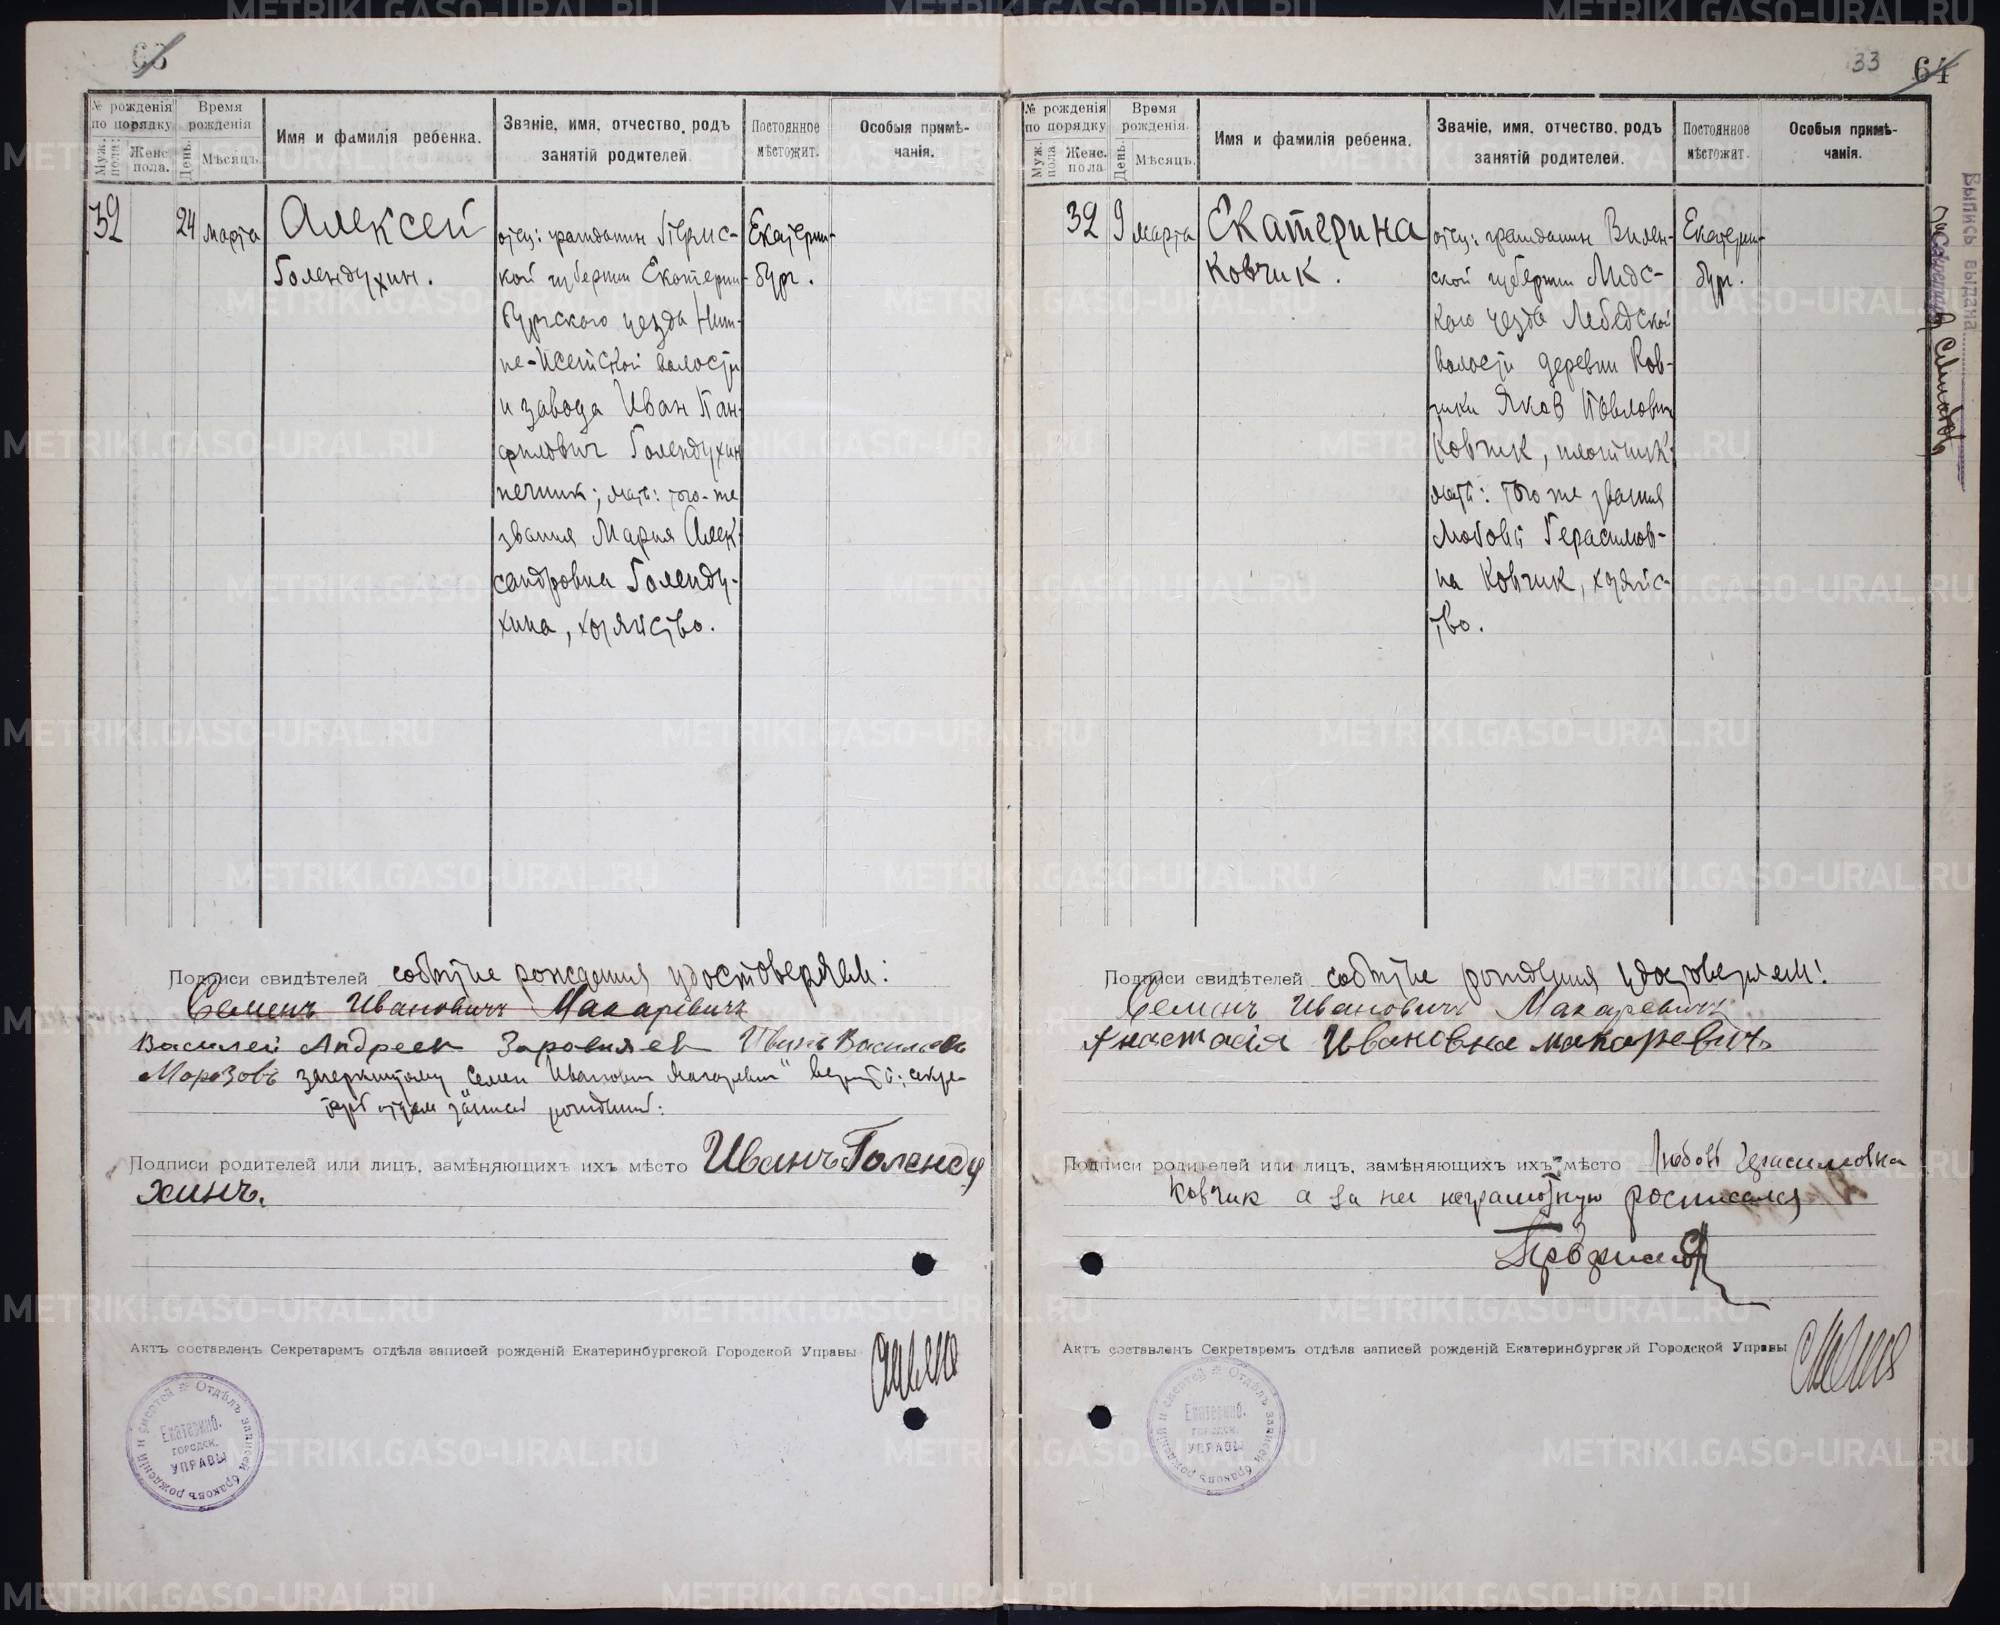 63
№ рожденія по порядку
Муж. пола.
Женс. пола.
Время рожденія
День.
Мѣсяцъ.
Имя и фамилія ребенка.
Званіе, имя, отчество, родъ занятій родителей.
Постоянное мѣстожит.
Особыя примѣчанія.
32
24
марта
Алексей
Голендухин.
отец: гражданин Пермс-
кой губернии Екатерин-
бургского уезда Ниж-
не-Исетской волости
и завода Иван Пан-
филович Голендухин
печник; мать: того-же
звания Мария Алек-
сандровна Голенду-
хина, хозяйство.
Екатерин-
бург.
Подписи свидѣтелей событие рождения удостоверяем:
Семенъ Ивановичъ Макаревичъ
Василей Андреев Иванъ Васильевъ
Морозовъ зачеркнутому "Семен Иванович Макаревич" верить: секре-
тарь отдела записей рождений:
Подписи родителей или лицъ, замѣняющихъ ихъ мѣсто Иванъ Голенду
хинъ.
Актъ составленъ Секретаремъ отдѣла записей рожденій Екатеринбургской Городской Управы
Отдѣлъ записей браковъ рожденій и смертей
Екатеринб.
городск.
УПРАВЫ
33
64
№ рожденія по порядку
Муж. пола.
Женс. пола
Время рожденія.
День.
Мѣсяцъ.
Имя и фамилія ребенка.
Званіе, имя, отчество, родъ занятій родителей.
Постоянное мѣстожит.
Особыя примѣчанія.
32
9
марта
Екатерина
Ковчик.
отец: гражданин Вилен-
ской губернии Лидс-
кого уезда Лебедской
волости деревни Ков-
чики Яков Павлович
Ковчик, плотник
мать: того же звания
Любовь Герасимов-
на Ковчик, хозяйс-
тво.
Екатерин-
бург.
Выпись выдана
Секретарь
Подписи свидѣтелей событие рождения удостоверяем!
Семенъ Ивановичъ Макаревичъ
Анастасія Ивановна макаревичъ
Подписи родителей или лицъ, замѣняющихъ ихъ мѣсто Любовь Герасимовна
Ковчик а за не неграмотную росписался
Актъ составленъ Секретаремъ отдѣла записей рожденій Екатеринбургской Городской Управы
Отдѣлъ записей браковъ рожденій и смертей
Екатеринб.
городск.
УПРАВЫ
METRIKI.GASO-URAL.RU